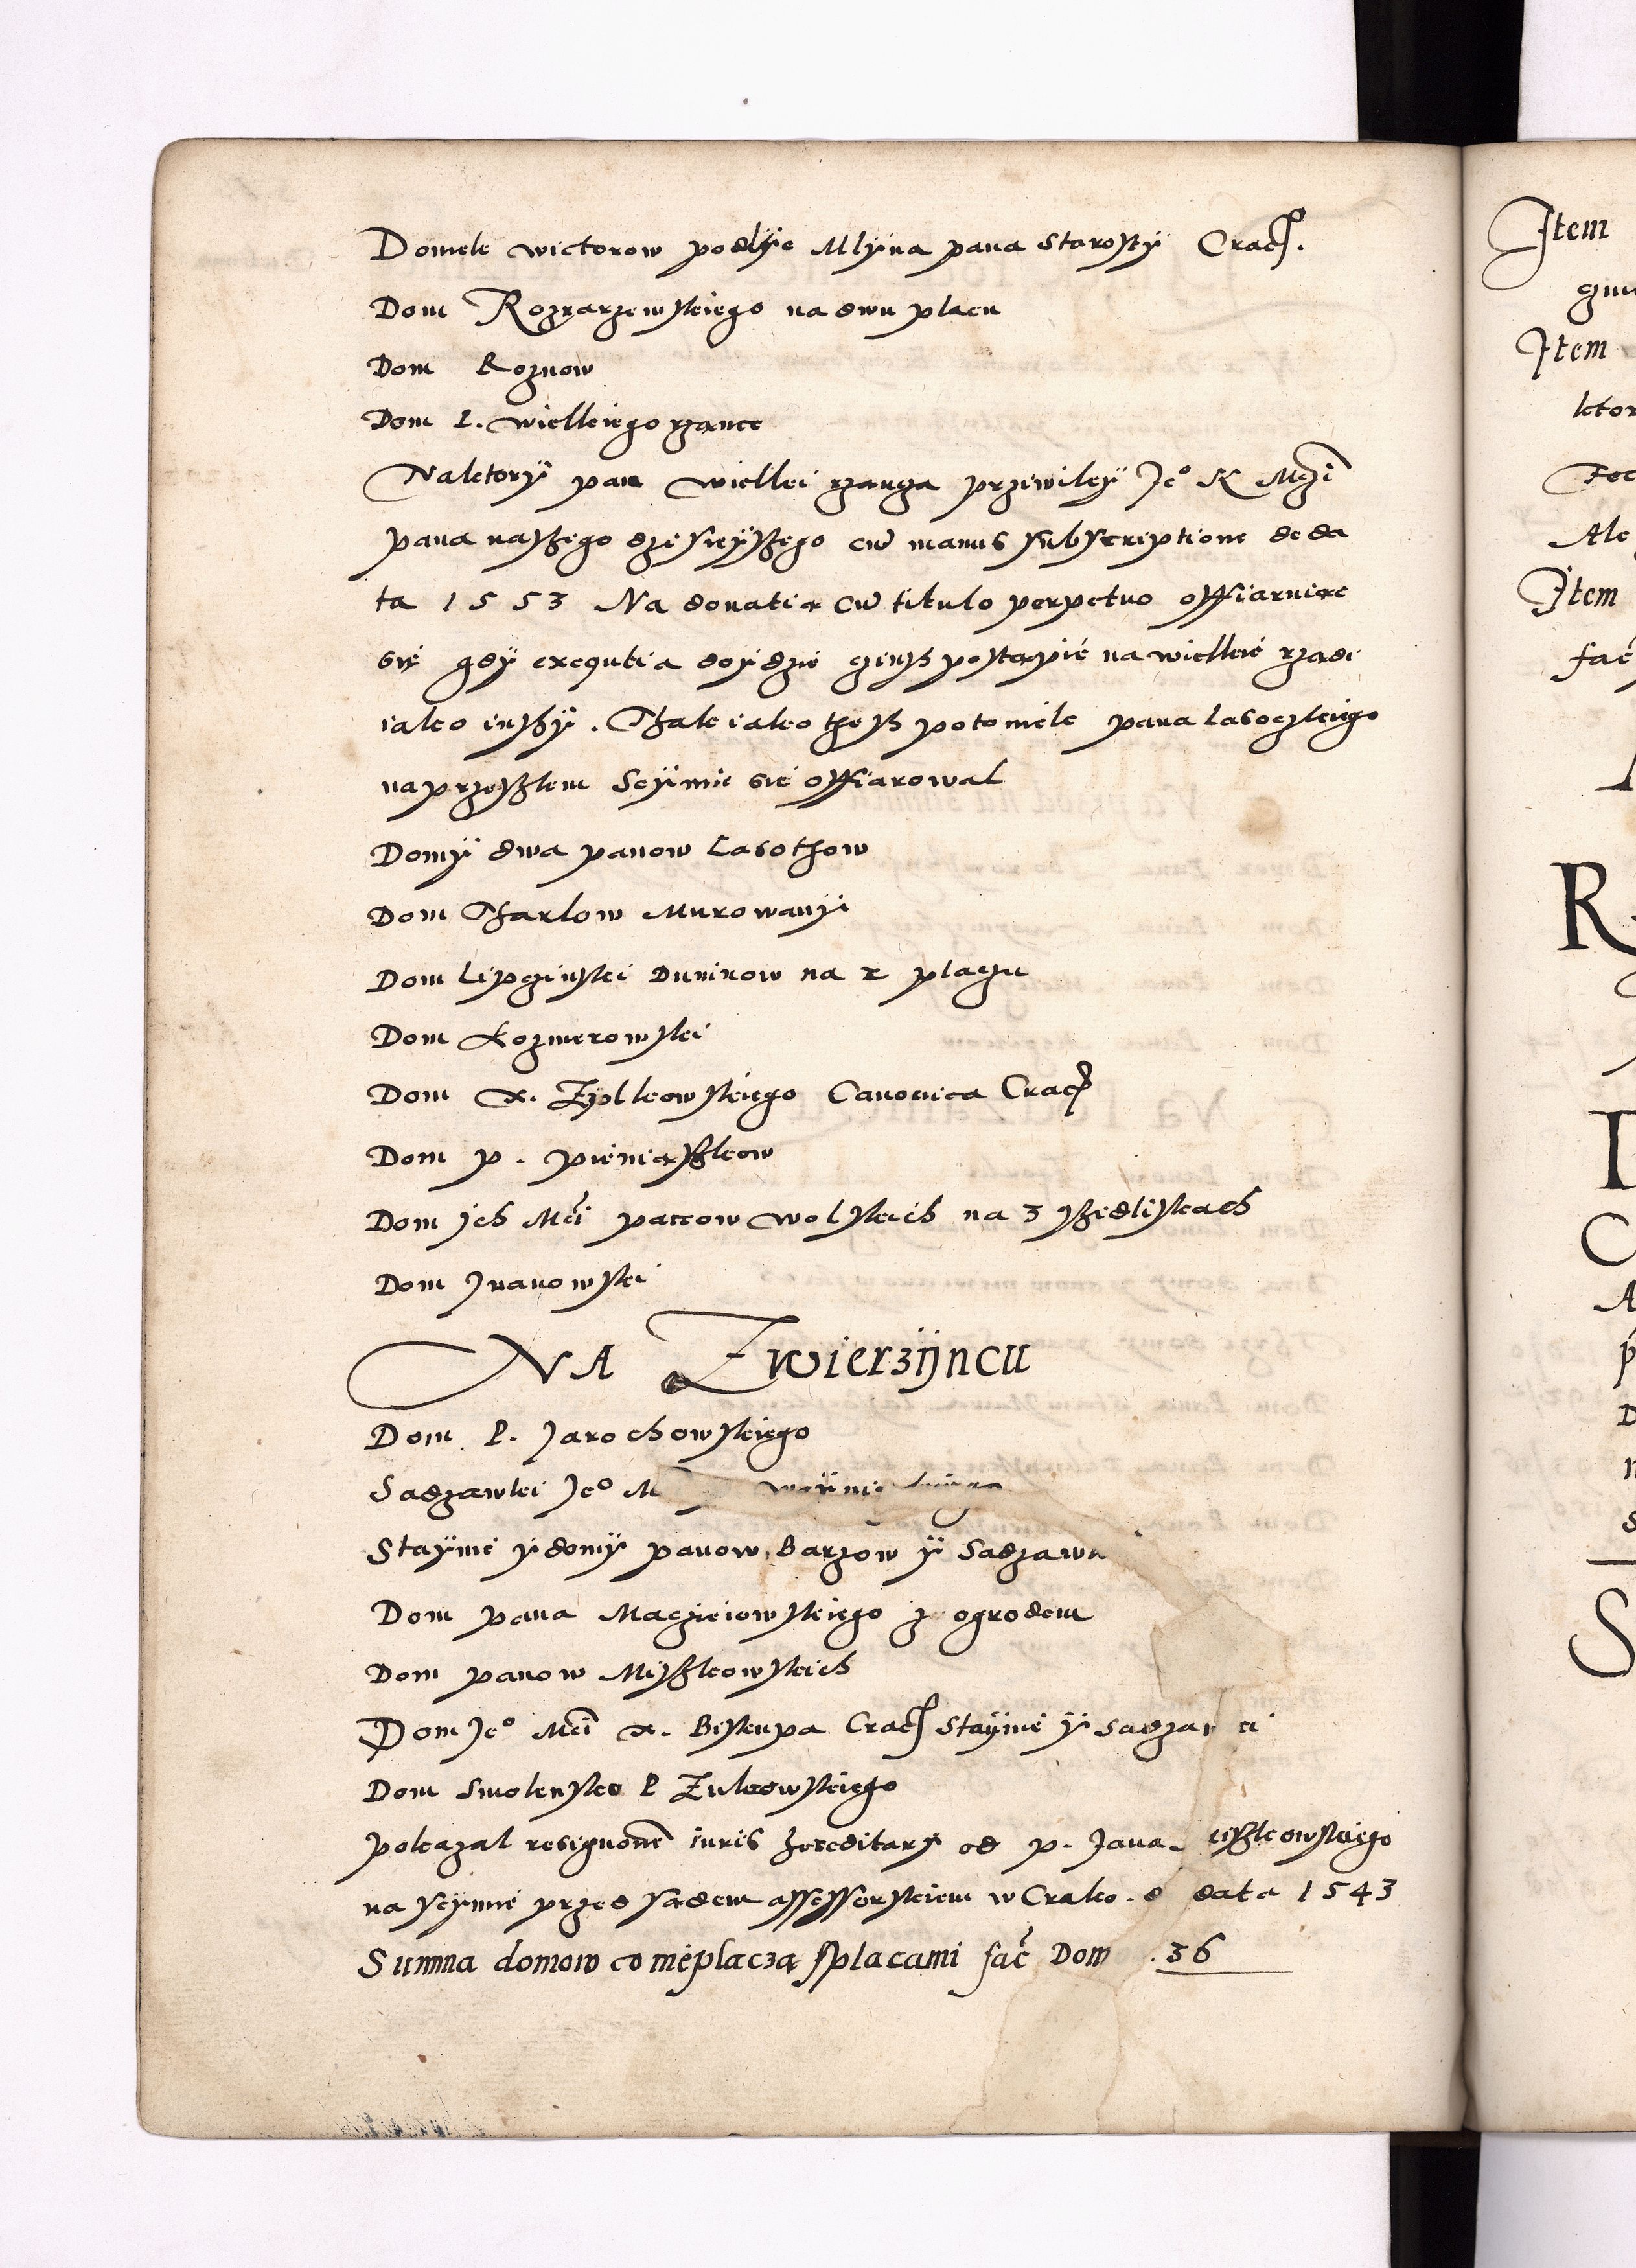 Domek wictorow podlye Mlyna pana Starosty Crac.
Dom Rozrarzewskiego na dwu placu
Dom Roznow
Dom P. wielkiegorzance
Naktory pan wielki rzancza prziwiley Jeº K Mczi
pana naszego dzisieyszego cū manus subscreptione de da
ta 1553 Na donatią cū titulo perpetuo offiaruiąc
się gdy exequtia doydzie czinsz postąpić na wielkie rządi
iako inszy. Thak iako thesz potomek pana Lasoczkiego
na przeszlem Seymie się offiarowal
Domy dwa panow Lasothow
Dom Tharlow Murowany
Dom Lipczinski Duninow na 2 placzu
Dom Kozmerowski
Dom x. Zolkowskiego Canonica Crac
Dom p. pieniąszkow
Dom Jch Mci panow wolskich na 3 szedliskach
Dom Iwanowski
NA Zwierzijncu
Dom P. Jarochowskiego
Sadzawki Jeº M
Staynie y domy panow Barzow y Sadzawk
Dom pana Macziejowskiego z ogrodem
Dom panow Miszkowskich
Dom Jeº Mci x. Biskupa Crac Staynie y Sadzaw ki
Dom Smolensko P Zulkowskiego
pokazal resignonē iuris hereditary od p. Jana iszkowskiego
na seymie przed sądem assessorskiem w Crako. d data 1543
Summa domow co nieplaczą splacami fac̄ Dom . 36
Item
Item
Item